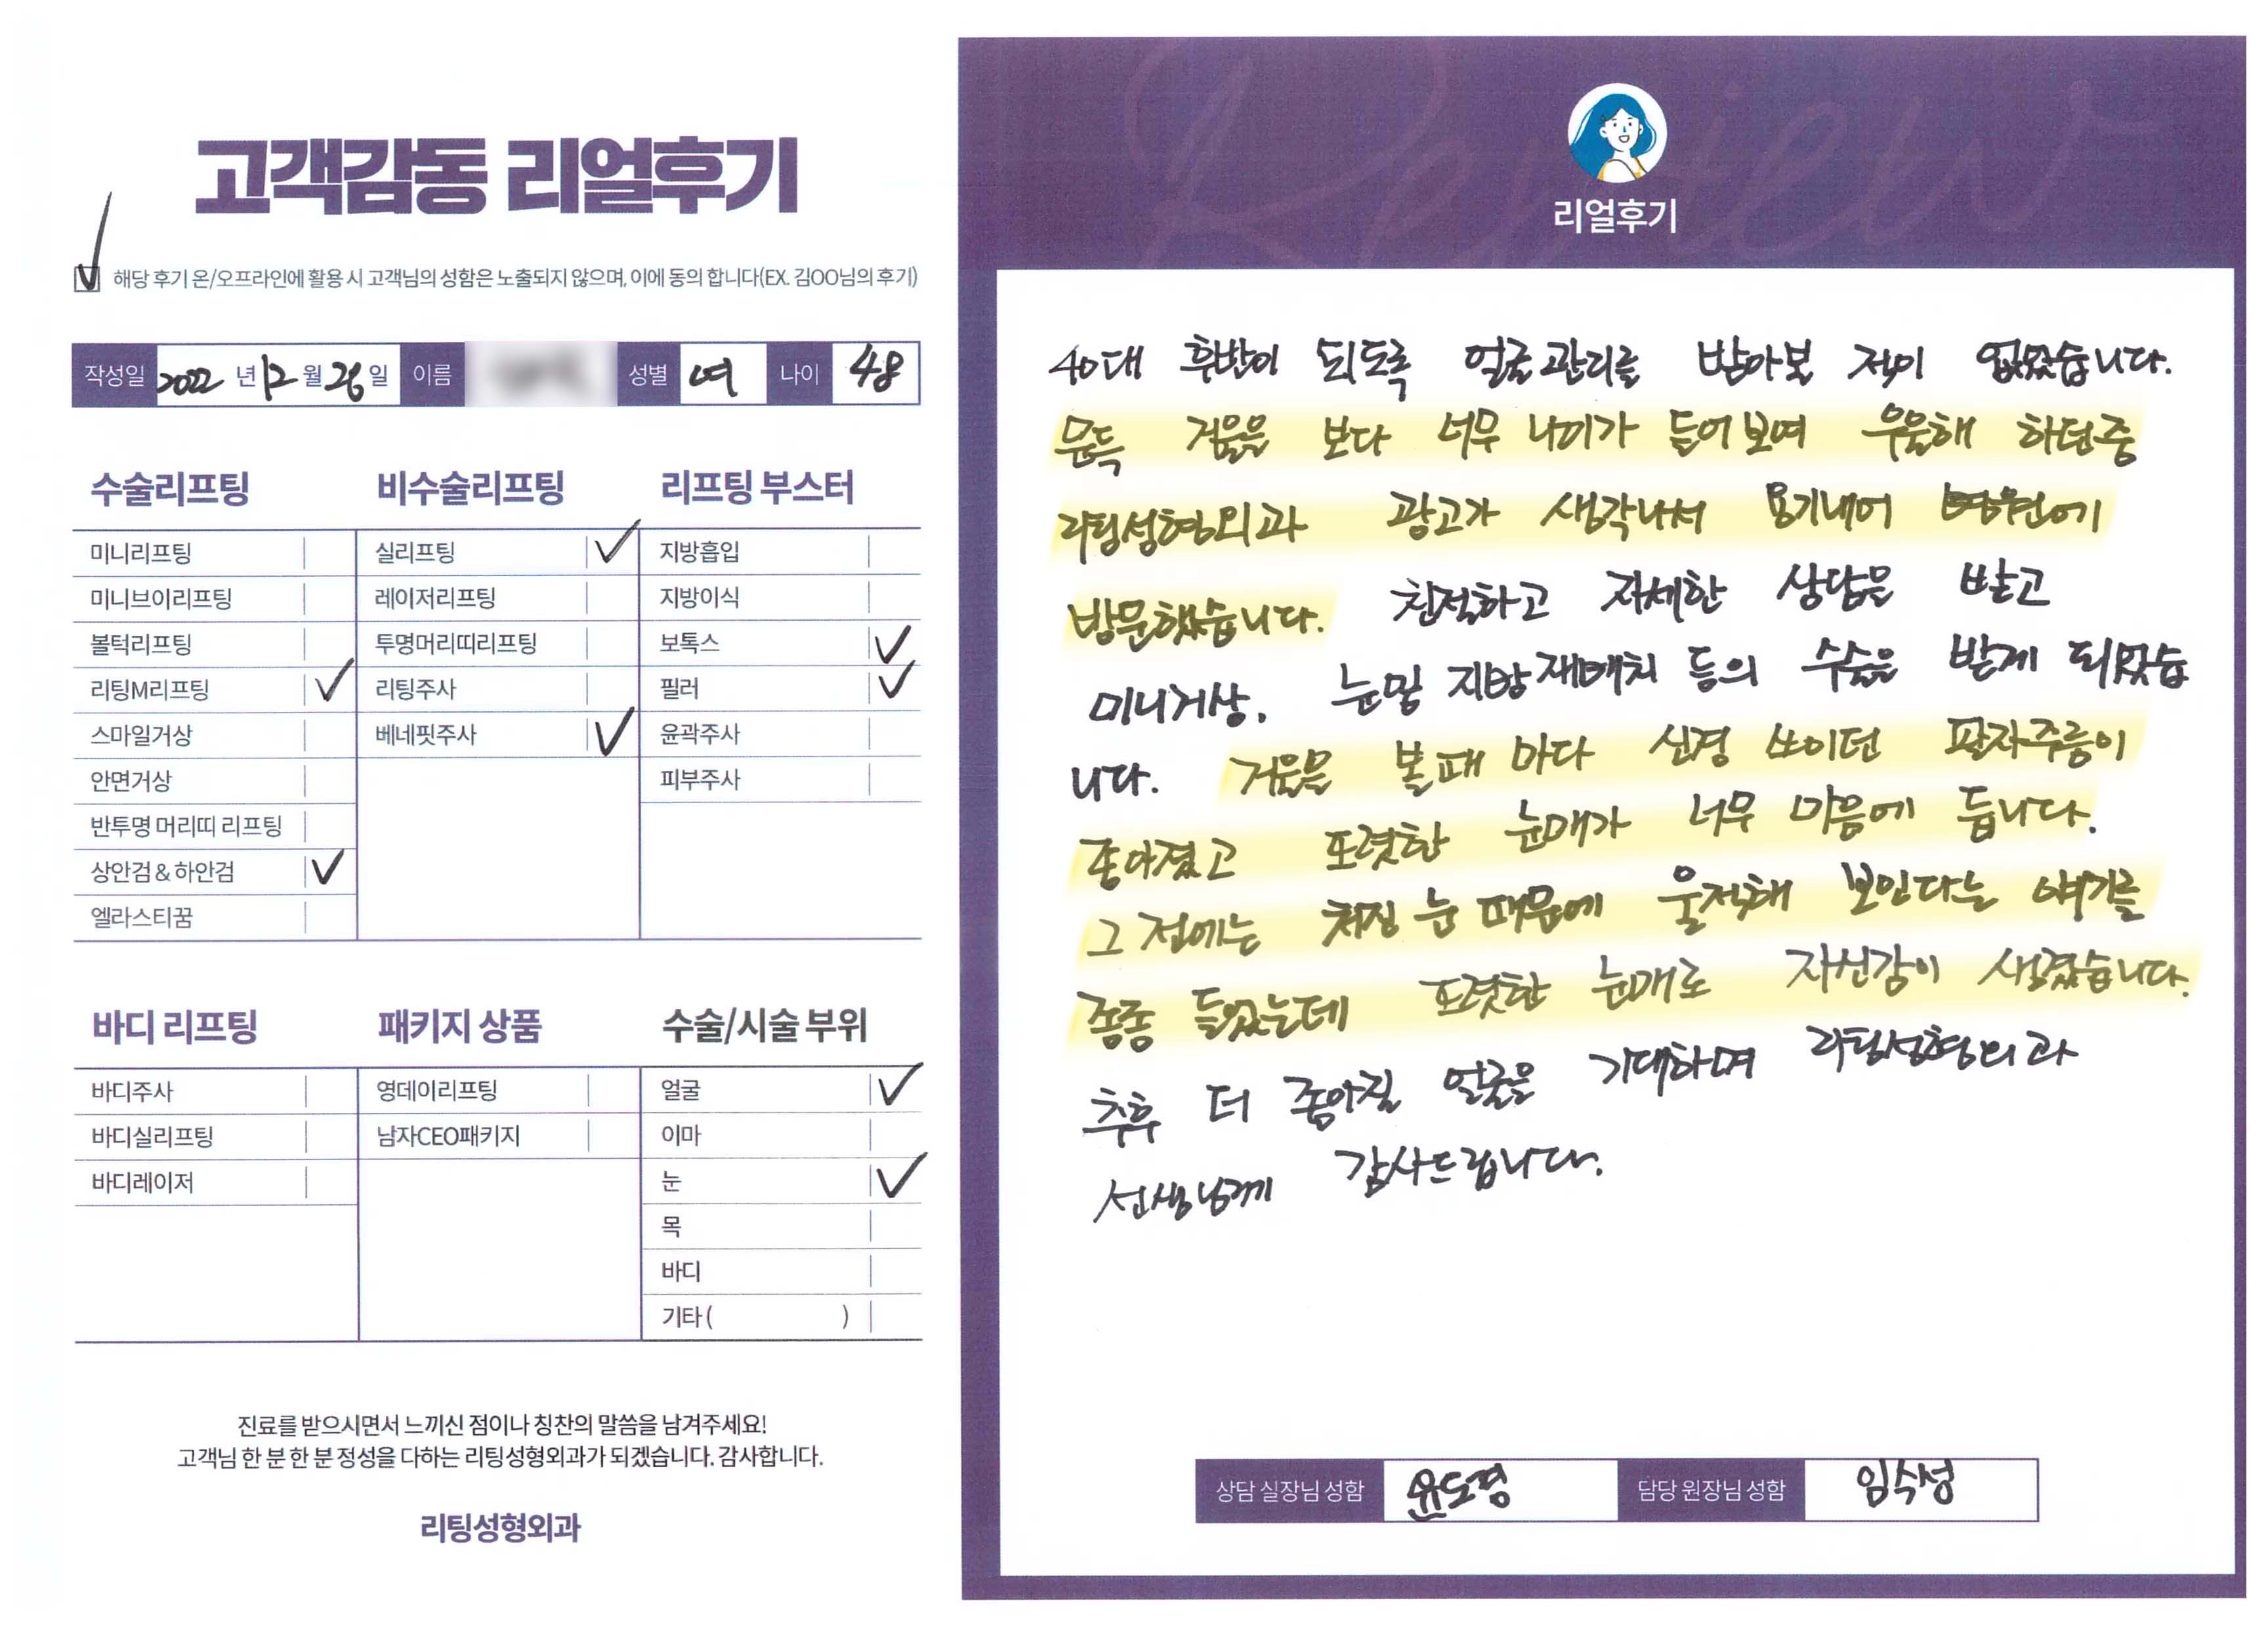 고객감동 리얼후기
해당 후기 온/오프라인에 활용 시 고객님의 성함은 노출되지 않으며, 이에 동의 합니다(EX. 김OO님의 후기)
작성일 2022 년 12 월 26 일 이름 성별 여 나이 48
수술리프팅
미니리프팅
미니브이리프팅
볼턱리프팅
리팅M리프팅
스마일거상
안면거상
반투명 머리띠 리프팅
상안검 & 하안검
엘라스티꿈
비수술리프팅
실리프팅
레이저리프팅
투명머리띠리프팅
리팅주사
베네핏주사
리프팅 부스터
지방흡입
지방이식
보톡스
필러
윤곽주사
피부주사
바디 리프팅
바디주사
바디실리프팅
바디레이저
패키지 상품
영데이리프팅
남자CEO패키지
수술/시술 부위
얼굴
이마
눈
목
바디
기타 ( )
진료를 받으시면서 느끼신 점이나 칭찬의 말씀을 남겨주세요!
고객님 한 분 한 분 정성을 다하는 리팅성형외과가 되겠습니다. 감사합니다.
리팅성형외과
Review
리얼후기
40대 후반이 되도록 얼굴관리를 받아본 적이 없었습니다.
문득 거울을 보다 너무 나이가 들어보여 우울해 하던중
리팅성형외과 광고가 생각나서 용기내어 병원에
방문했습니다. 친절하고 자세한 상담을 받고
미니거상. 눈밑 지방재배치 등의 수술을 받게 되었습
니다. 거울을 볼때 마다 신경 쓰이던 팔자주름이
좋아졌고 또렷한 눈매가 너무 마음에 듭니다.
그 전에는 처진 눈 때문에 울적해 보인다는 얘기를
종종 들었는데 또렷한 눈매로 자신감이 생겼습니다.
추후 더 좋아질 얼굴을 기대하며 리팅성형외과
선생님께 감사드립니다.
상담 실장님 성함 윤도경 담당 원장님 성함 임수성